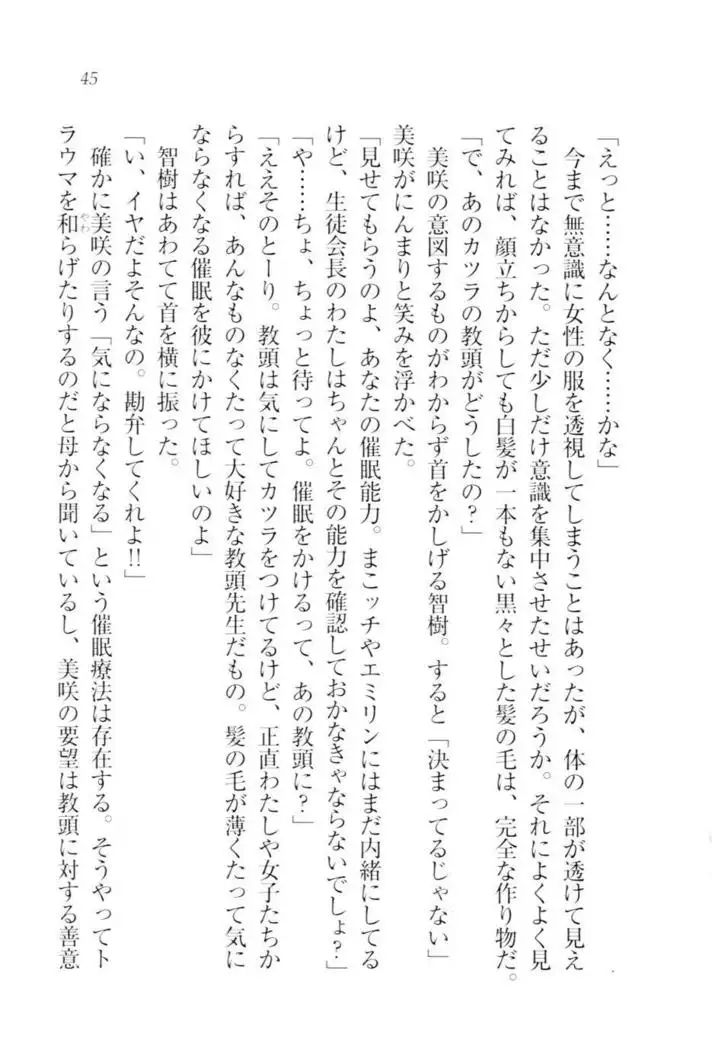 45
「えっと……なんとなく……かな」
　今まで無意識に女性の服を透視してしまうことはあったが、体の一部が透けて見え
ることはなかった。ただ少しだけ意識を集中させたせいだろうか。それによくよく見
てみれば、顔立ちからしても白髪が一本もない黒々とした髪の毛は、完全な作り物だ。
「で、あのカツラの教頭がどうしたの？」
　美咲の意図するものがわからず首をかしげる智樹。すると「決まってるじゃない」
美咲がにんまりと笑みを浮かべた。
「見せてもらうのよ、あなたの催眠能力。まこッチやエミリンにはまだ内緒にしてる
けど、生徒会長のわたしはちゃんとその能力を確認しておかなきゃならないでしょ？」
「や……ちょ、ちょっと待ってよ。催眠をかけるって、あの教頭に？」
「ええそのとーり。教頭は気にしてカツラをつけてるけど、正直わたしや女子たちか
らすれば、あんなものなくたって大好きな教頭先生だもの。髪の毛が薄くたって気に
ならなくなる催眠を彼にかけてほしいのよ」
　智樹はあわてて首を横に振った。
「い、イヤだよそんなの。勘弁してくれよ!!」
　確かに美咲の言う「気にならなくなる」という催眠療法は存在する。そうやってト
ラウマを和らげたりするのだと母から聞いているし、美咲の要望は教頭に対する善意